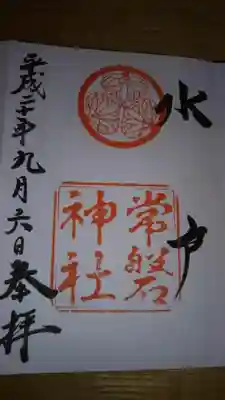 水戸
常磐
神社
平成二十年九月六日奉拝